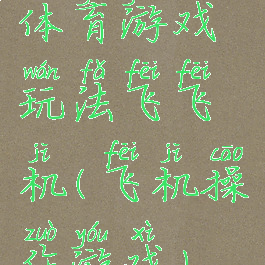 体育游戏
wán fǎ fēi fēi
玩法飞飞
jī fēi jī cāo
机(飞机操
zuò yóu xì
作游戏)